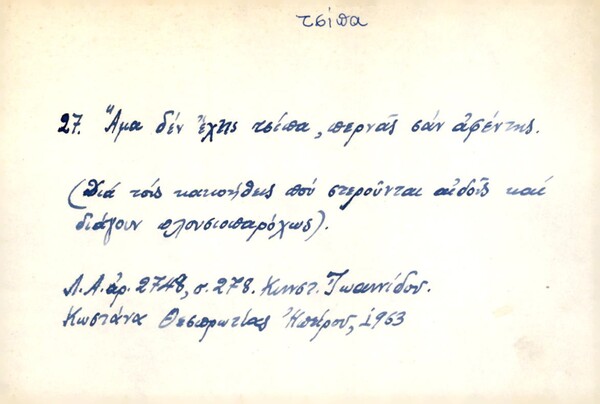 τσίπα
27. Ἅμα δέν ἔχῃς τσίπα, περνᾷς σάν ἀφέντης.
(Διά τούς κακοήθεις πού στεροῦνται αἰδοῦς καί
διάγουν πλουσιοπαρόχως).
Λ.Α. ἀρ. 2748, σ. 278. Κωνστ. Ἰωαννίδου.
Κωστάνα Θεσπρωτίας Ἠπείρου, 1963